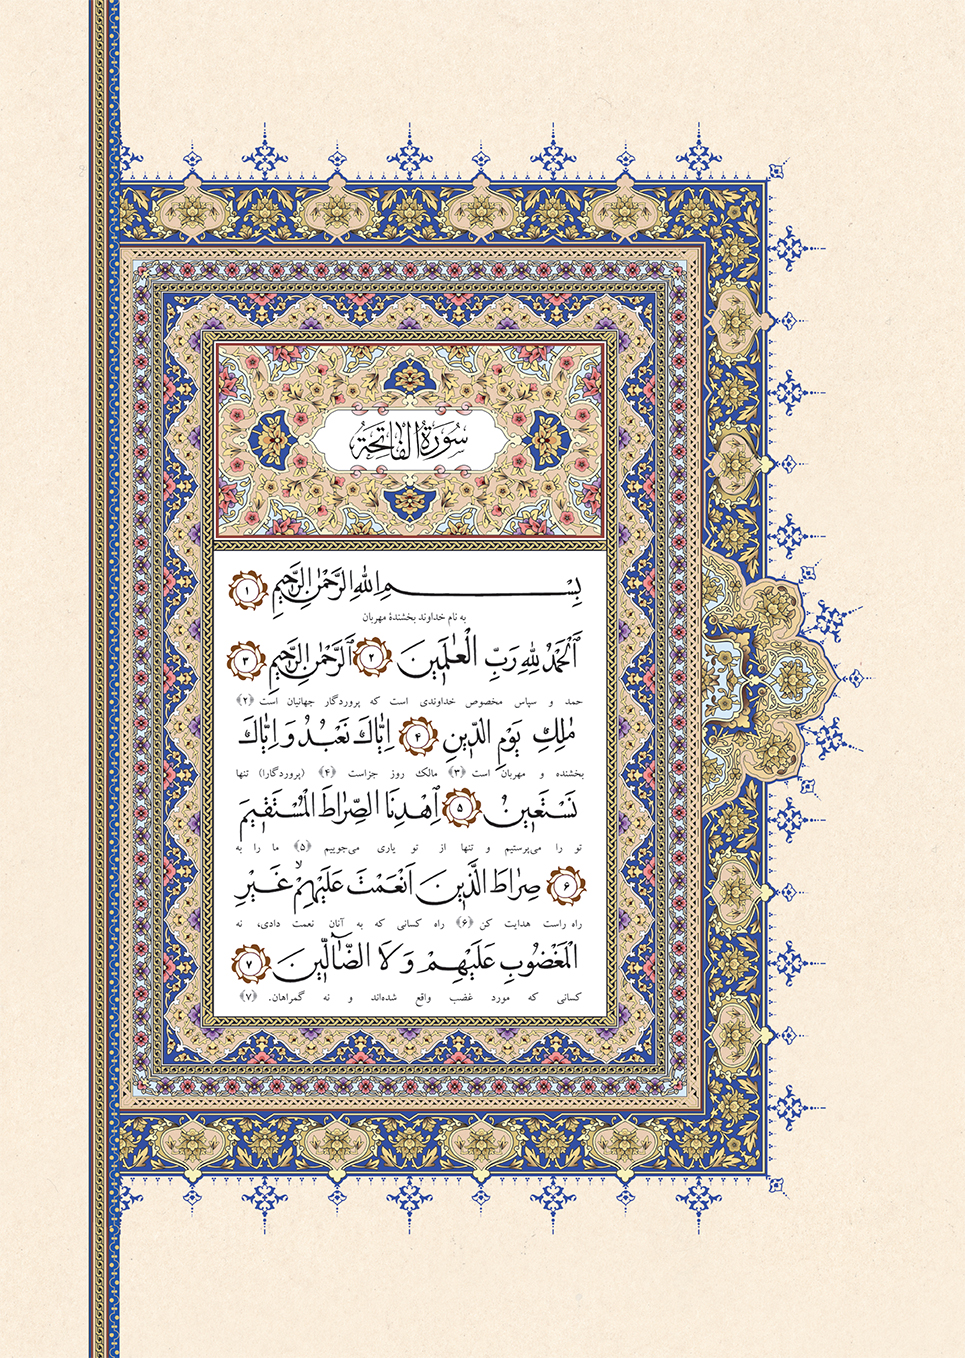 سُورَةُ الْفَاتِحَةِ
بِسْمِ اللهِ الرَّحْمٰنِ الرَّحِيمِ ﴿١﴾
به نام خداوند بخشندهٔ مهربان
اَلْحَمْدُ لِلّٰهِ رَبِّ الْعٰلَمِينَ ﴿٢﴾ اَلرَّحْمٰنِ الرَّحِيمِ ﴿٣﴾
حمد و سپاس مخصوص خداوندی است که پروردگار جهانیان است ﴿۲﴾
مٰلِكِ يَوْمِ الدِّينِ ﴿۴﴾ اِيَّاكَ نَعْبُدُ وَ اِيَّاكَ
بخشنده و مهربان است ﴿۳﴾ مالک روز جزاست ﴿۴﴾ (پروردگارا) تنها
نَسْتَعِينُ ﴿۵﴾ اِهْدِنَا الصِّرَاطَ الْمُسْتَقِيمَ
تو را می‌پرستیم و تنها از تو یاری می‌جوییم ﴿۵﴾ ما را به
﴿۶﴾ صِرَاطَ الَّذِينَ اَنْعَمْتَ عَلَيْهِمْ غَيْرِ
راه راست هدایت کن ﴿۶﴾ راه کسانی که به آنان نعمت دادی، نه
الْمَغْضُوبِ عَلَيْهِمْ وَ لَا الضَّٓالِّينَ ﴿٧﴾
کسانی که مورد غضب واقع شده‌اند و نه گمراهان. ﴿۷﴾